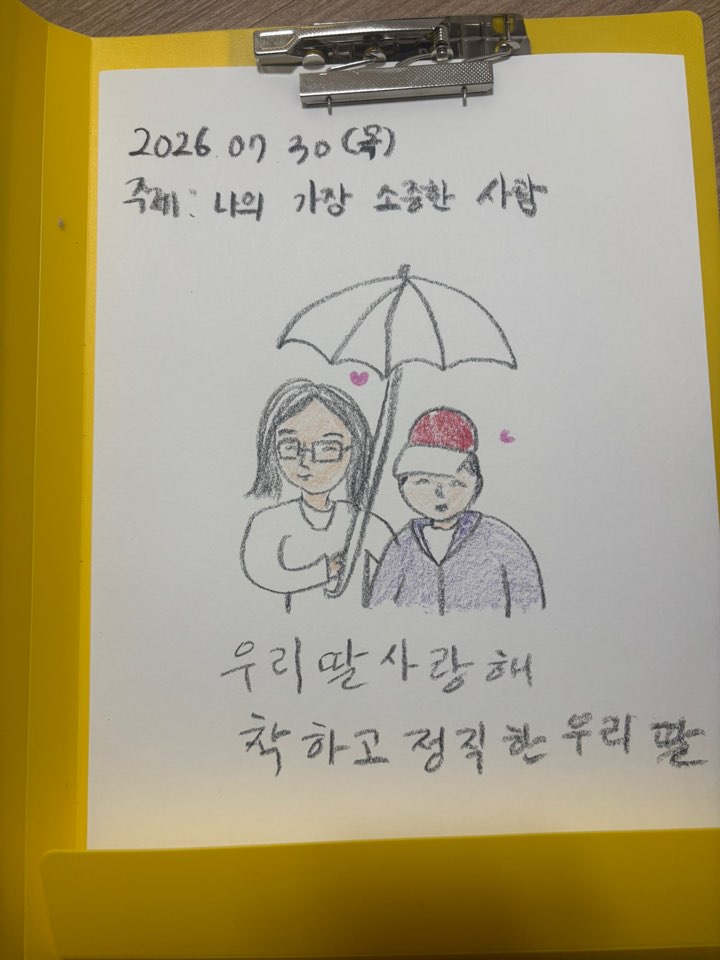 2026. 07 30 (목)
주제: 나의 가장 소중한 사람
우리딸사랑해
착하고 정직한 우리 딸